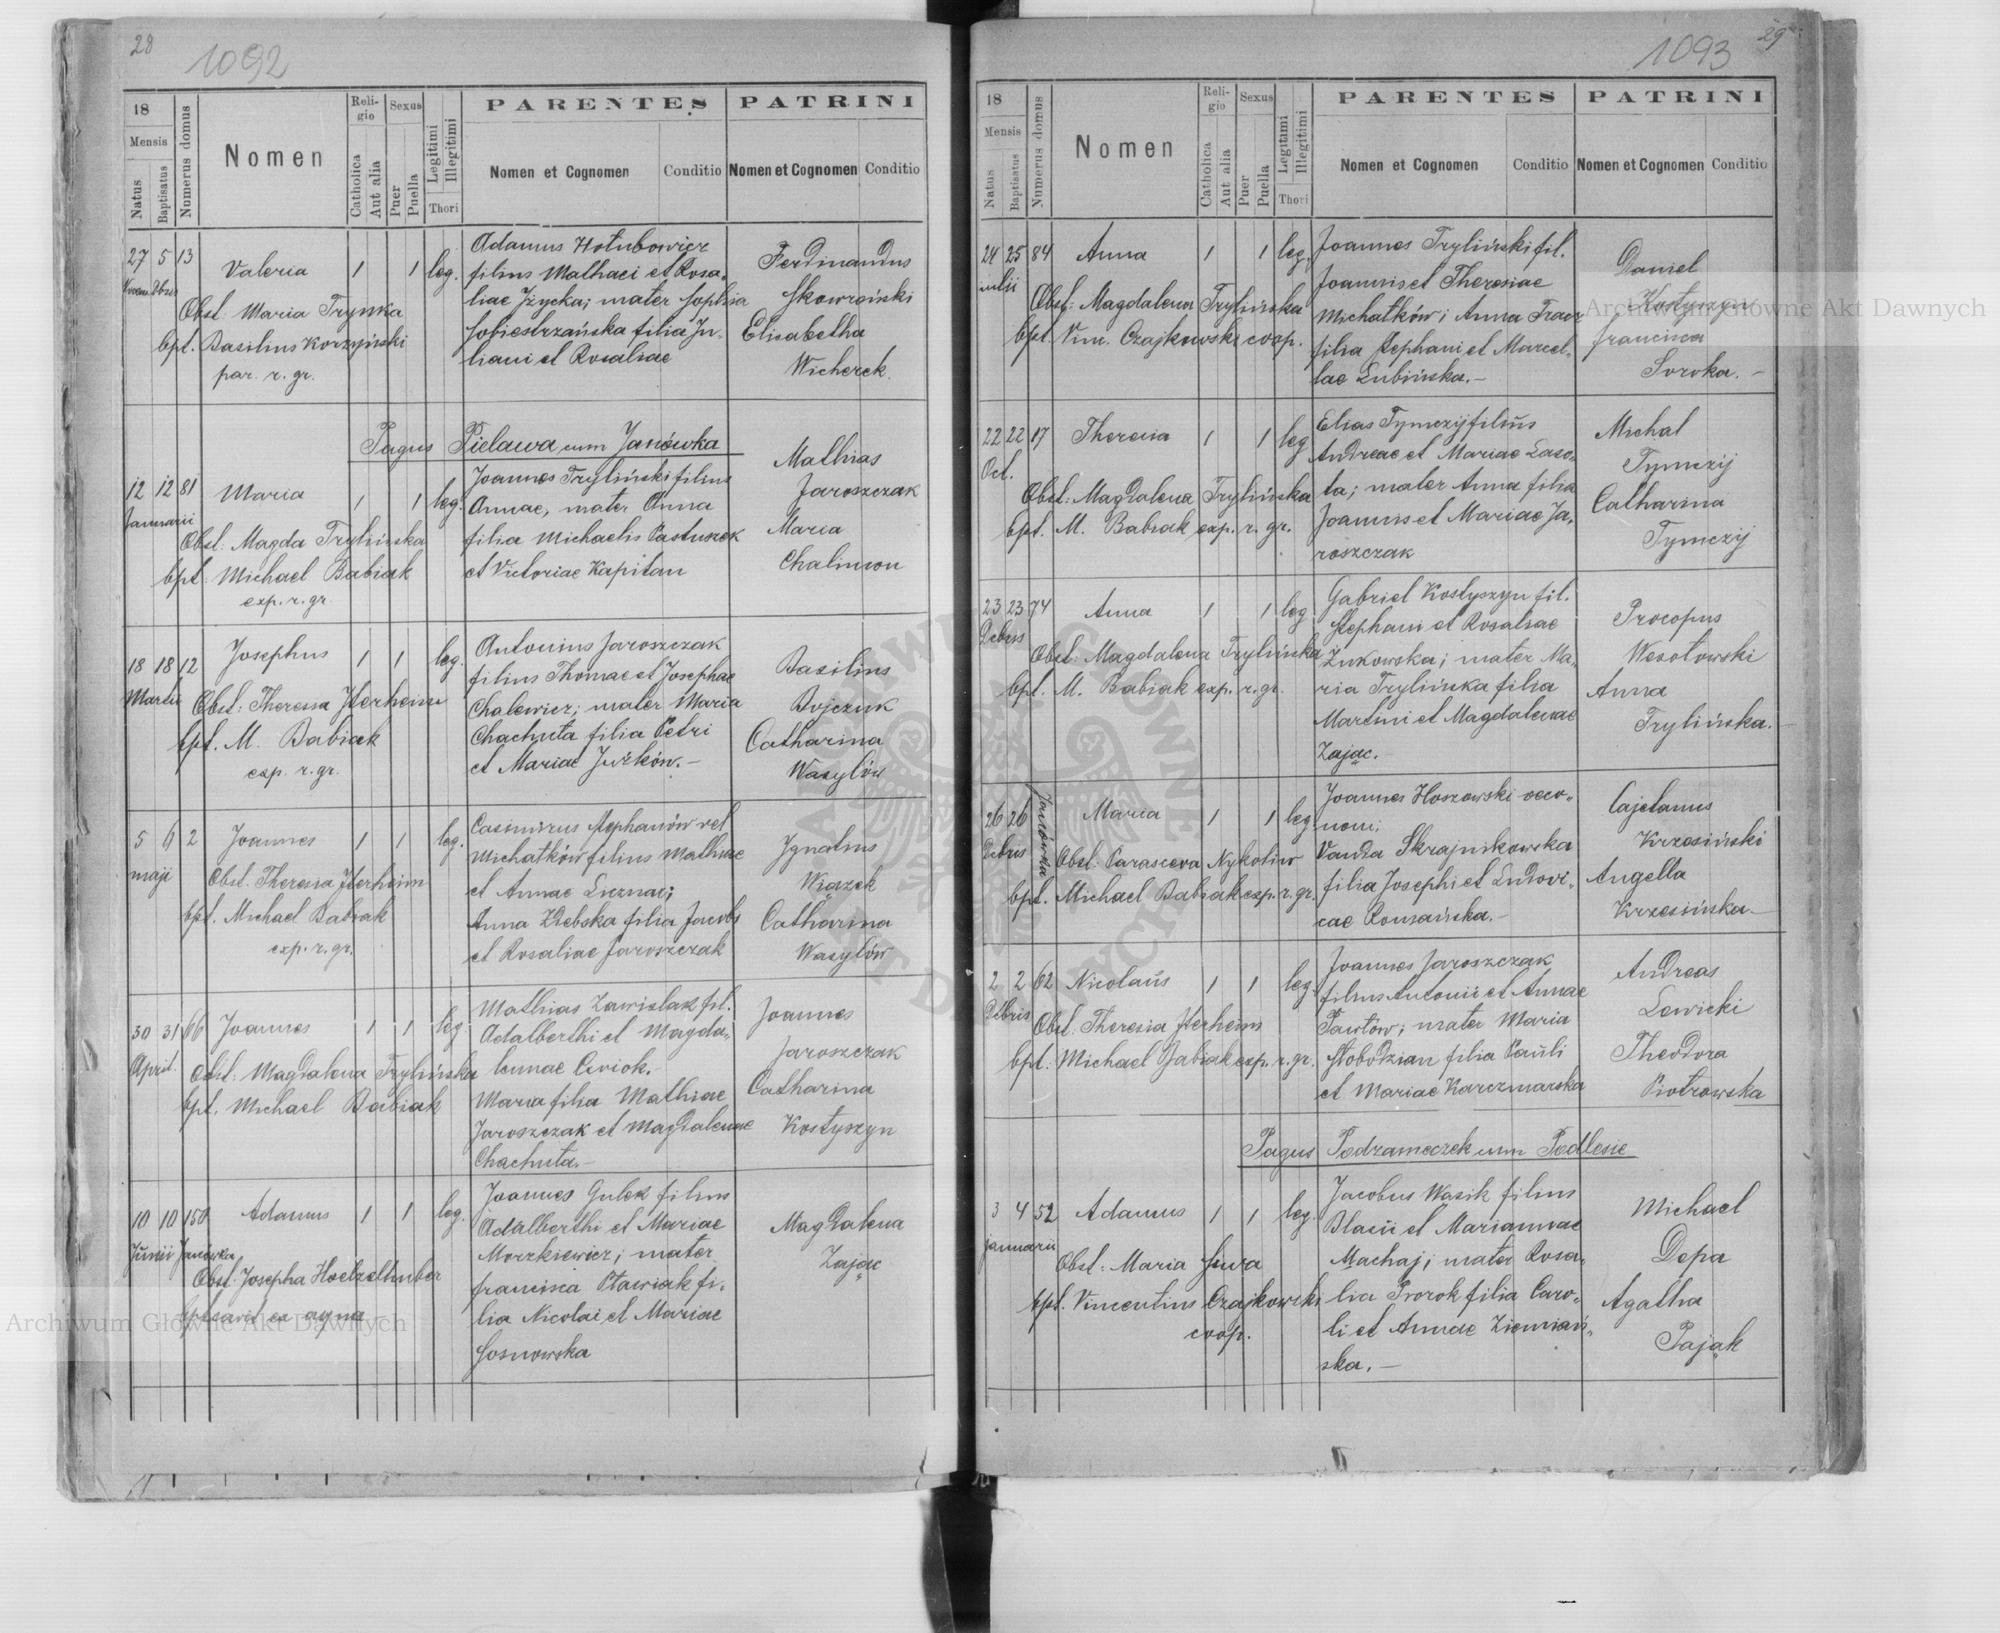 28
1092
18
Mensis
Natus
Baptisatus
Numerus domus
Nomen
Religio
Catholica
Aut alia
Sexus
Puer
Puella
Legitimi
Illegitimi
Thori
PARENTES
Nomen et Cognomen
Conditio
PATRINI
Nomen et Cognomen
Conditio
27 5 13
Valeria 1 1 leg.
Obst. Maria Trynka
bpt. Basilius Korzyński
par. r. gr.
Adamus Hołubowicz
filius Mathaei et Rosa-
liae Życka; mater Sophia
Sobiestrzańska filia Ju-
liani et Rosaliae
Ferdinandus
Skowroński
Elisabetha
Wicherek
Pagus Pielawa cum Janówka
12 12 81
Januarii
Maria 1 1 leg.
Obst. Magda Trylińska
bpt. Michael Babiak
exp. r. gr.
Joannes Tryliński filius
Annae, mater Anna
filia Michaelis Pastuszek
et Victoriae Kapitan
Mathias
Jaroszczak
Maria
Chalimon
18 18 12
Martii
Josephus 1 1 leg.
Obst: Theresia Sterheim
bpt. M. Babiak
exp. r. gr.
Antonius Jaroszczak
filius Thomae et Josephae
Chalewicz; mater Maria
Chachuta filia Petri
et Mariae Jurków.-
Basilius
Bojczuk
Catharina
Wasylów
5 6 2
maji
Joannes 1 1 leg.
Obst. Theresia Sterheim
bpt. Michael Babiak
exp. r. gr.
Casimirus Stephanów vel
Michałków filius Mathiae
et Annae Łuznac;
Anna Źrebska filia Jacobi
et Rosaliae Jaroszczak
Ignatius
Wiązek
Catharina
Wasylów
30 31 66
April.
Joannes 1 1 leg
Obst: Magdalena Trylińska
bpt. Michael Babiak
Mathias Zawiślak fil.
Adalberthi et Magda-
lennae Ćwiok.-
Maria filia Mathiae
Jaroszczak et Magdalenae
Chachuta.-
Joannes
Jaroszczak
Catharina
Kostyszyn
10 10 150
Junii Janówka
Adamus 1 1 leg.
Obst. Josepha Hoelzelhuber
bptisavit ex aqua
Joannes Gulek filius
Adalberthi et Mariae
Morzkiewicz; mater
Francisca Stawiak fi-
lia Nicolai et Mariae
Sosnowska
Magdalena
Zając
29
1093
18
Mensis
Natus
Baptisatus
Numerus domus
Nomen
Religio
Catholica
Aut alia
Sexus
Puer
Puella
Legitimi
Illegitimi
Thori
PARENTES
Nomen et Cognomen
Conditio
PATRINI
Nomen et Cognomen
Conditio
24 25 84
Julii
Anna 1 1 leg.
Obst: Magdalena Trylińska
bpt. Vinc. Czajkowski coop.
Joannes Tryliński fil.
Joannis et Theresiae
Michałków; Anna Tracz
filia Stephani et Marcel-
lae Lubińska.-
Daniel
Kostyszyn
Francisca
Soroka.-
22 22 17
Oct.
Theresia 1 1 leg
Obst: Magdalena Trylińska
bpt. M. Babiak exp. r. gr.
Elias Tymczij filius
Andreae et Mariae Laso-
ta; mater Anna filia
Joannis et Mariae Ja-
roszczak
Michal
Tymczij
Catharina
Tymczij
23 23 74
Xbris
Anna 1 1 leg
Obst: Magdalena Trylińska
bpt. M. Babiak exp. r. gr.
Gabriel Kostyszyn fil.
Stephani et Rosaliae
Żukowska; mater Ma-
ria Trylińska filia
Martini et Magdalenae
Zając.-
Procopus
Wesołowski
Anna
Trylińska.-
26 26 Janówka
Xbris
Maria 1 1 leg.
Obst. Parasceva Nykoliw
bpt. Michael Babiak exp. r. gr.
Joannes Hoszowski oeco-
nom;
Vanda Skrajnikowska
filia Josephi et Ludovi-
cae Romańska.-
Cajetanus
Krzesiński
Angella
Krzesińska.-
2 2 62
Xbris
Nicolaus 1 1 leg.
Obst. Theresia Sterheim
bpt. Michael Babiak exp. r. gr.
Joannes Jaroszczak
filius Antonii et Annae
Pawłów; mater Maria
Słobodzian filia Pauli
et Mariae Karczmarska
Andreas
Lewicki
Theodora
Piotrowska
Pagus Podzameczek cum Podlesie
3 4 52
Januarii
Adamus 1 1 leg.
Obst. Maria Jura
bpt. Vincentius Czajkowski
coop.
Jacobus Wasik filius
Blasii et Mariannae
Machaj; mater Rosa-
lia Prorok filia Caro-
li et Annae Ziemiań-
ska.-
Michael
Depa
Agatha
Pająk
Archiwum Główne Akt Dawnych
Archiwum Główne Akt Dawnych
ARCHIWUM GŁÓWNE AKT DAWNYCH